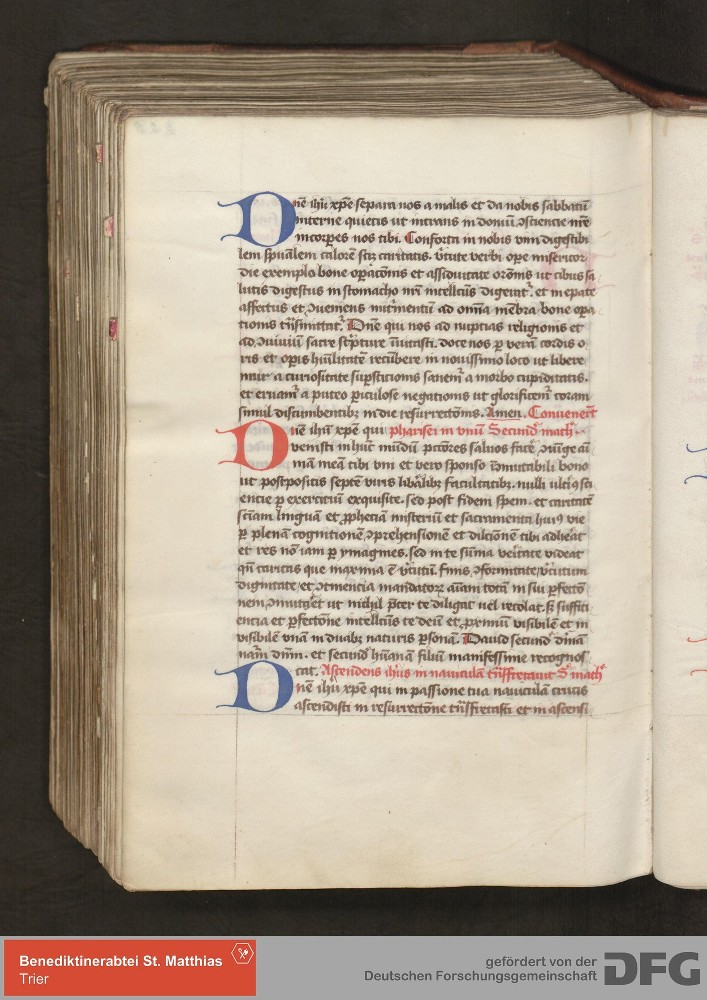 Dn̄e ihū xp̄e separa nos a malis et da nobis sabbatū
interne quietis ut intrans in domū ꝯsciencie nr̄e
incorp̄es nos tibi. Conforta in nobis vim digestibi
lem sp̄ualem calorē scꝫ caritatis. v̓tute verbi ope misericor
die exemplo bone oꝑacōnis et assiduitate orōnis ut cibus sa
lutis digestus in stomacho nr̄i intellc̄us digerat᷑. et in epate
affectus et ꝯuertens nutrimentū ad om̄ia mēbra bone oꝑa
tionis trāsmittat᷑. Dn̄e qui nos ad nuptias religionis et
ad ꝯuiuiū sacre scͥpture inuitasti. doce nos ꝑ verā cordis o
ris et oꝑis hūilitatē recūbere in nouissimo loco ut libere
mur a curiositate suꝑsticionis sanem᷑ a morbo cupiditatis.
et eruam᷑ a puteo ꝑiculose negationis ut glorificem᷑ coram
simul discumbentibꝫ in die resurrectōnis. Amen. Conuenerūt
Dn̄e ihū xp̄e qui pharisei in vnū Secund᷑ math᷑
venisti in hūc mūdū pctōres saluos facē ꝯiūge aī
mā meā tibi vni et vero sponso īmutabili bono
ut postpositis septē viris lib̓alibꝫ facultatibꝫ. nulli ult̓iꝰ sci
encie ꝑ exerciciū exquisite. sed post fidem spem. et caritatē
sciam linguam et ꝓphetiam misteriū et sacramenta huiꝰ vie
ꝑ plenam cognitionē ꝯprehensionē et dilc̄ionē tibi adheat
et res nō iam ꝑ ymagines. sed in te sūma veritate videat
qn̄ caritas que maxima ē v̓tutū. finis ꝯformitate v̓tutum
dignitate et ꝯtinencia mandatoꝝ cūam totā in sui ꝑfectō
nem ꝯiungēt ut nichil pret̓ te diligat uel recolat. sꝫ suffici
encia et ꝑfectōne intellc̄us te deū et ꝓximū visibilē et in
visibilē vnā in duabꝫ naturis ꝑsonā. Dauid secund᷑ diuinā
nat᷑m dn̄m. et secund᷑ hūanā filiū manifestissime recognos
cat. Ascendens ih̄us in nauiculā trāsfretauit S᷑ math᷑
Dn̄e ihū xp̄e qui in passione tua nauiculā crucis
ascendisti in resurrectōne trāsfretasti et in ascensi
Benediktinerabtei St. Matthias
Trier
gefördert von der
Deutschen Forschungsgemeinschaft
DFG